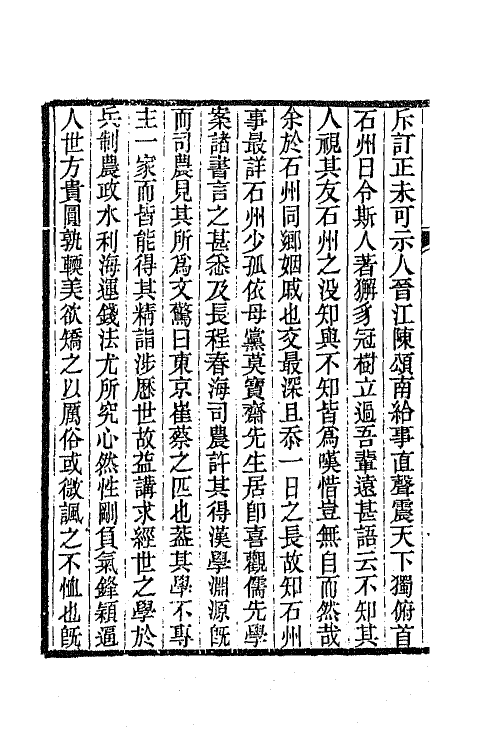 斥訂正未可示人晉江陳頌南給事直聲震天下獨俯首
石州曰令斯人著獬豸冠樹立過吾輩遠甚語云不知其
人視其友石州之没知與不知皆爲嘆惜豈無自而然哉
余於石州同鄉姻戚也交最深且忝一日之長故知石州
事最詳石州少孤依母黨莫寶齋先生居卽喜觀儒先學
案諸書言之甚悉及長程春海司農許其得漢學淵源旣
而司農見其所爲文驚曰東京崔蔡之匹也葢其學不專
主一家而皆能得其精詣涉歷世故益講求經世之學於
兵制農政水利海運錢法尤所究心然性剛負氣鋒穎逼
人世方貴圓孰輭美欲矯之以厲俗或微諷之不恤也旣